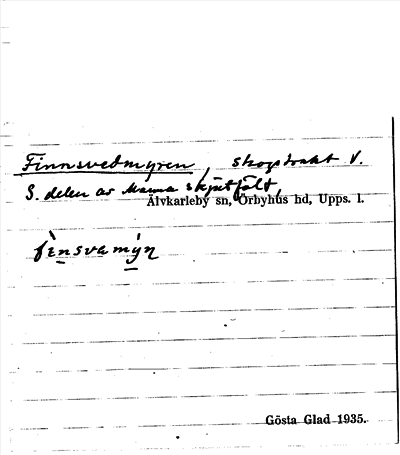 Finnsvedmyren, skogstrakt V.
S. delen av Marma skjutfält,
Älvkarleby sn, Örbyhus hd, Upps. l.
fìnsvamýn
Gösta Glad 1935.